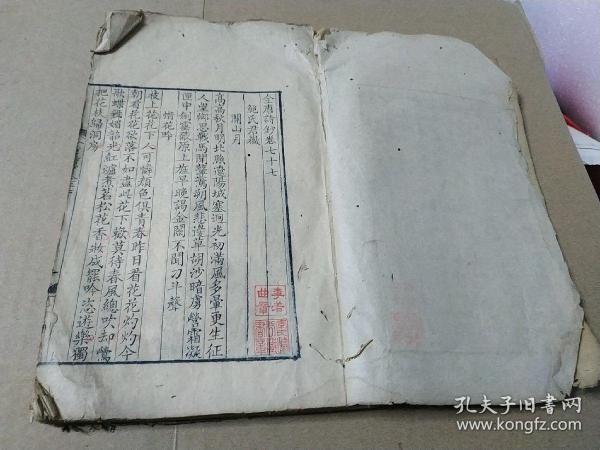 全唐詩鈔卷七十七
鮑氏君徽
關山月
高高秋月明北照遼陽城塞迥光初滿風多暈更生征
人望鄉思戰馬聞鼙驚朔風悲邊草胡沙暗虜營霜凝
匣中劍風憊原上旌早晚謁金闕不聞刁斗聲
惜花吟
枝上花花下人可憐顏色俱青春昨日看花花灼灼今
朝看花花欲落不如盡此花下歡莫待春風總吹却鶯
歌蝶舞媚韶光紅爐煮茗松花香妝成罷吟恣遊樂獨
把花枝歸洞房
孔夫子旧书网
www.kongfz.com